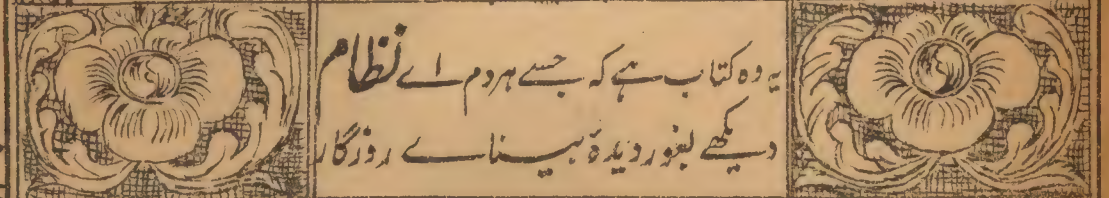 یہ وہ کتاب ہے کہ جسے ہر دم اے نظام
دیکھے بغور دیدۂ بیناے روزگار